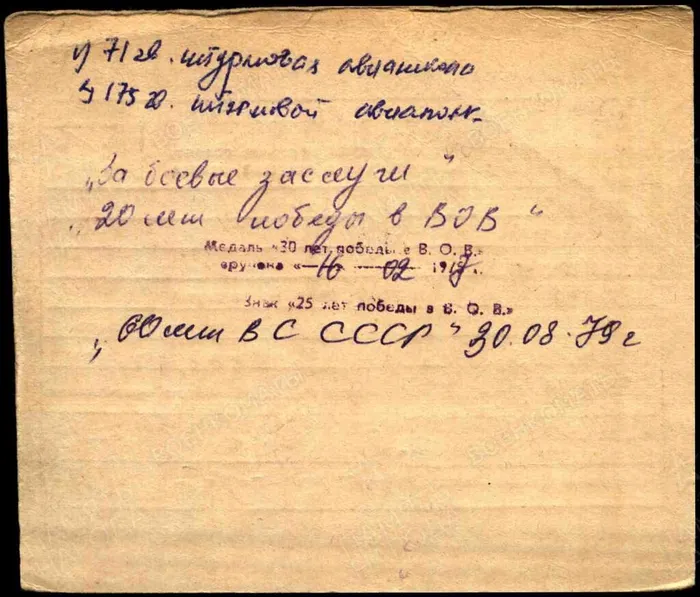 1) 71 гв. штурмовая авиашкола
2) 175 гв. штурмовой авиаполк
„За боевые заслуги"
„20 лет победы в ВОВ"
Медаль «30 лет победы в В. О. В.»
вручена «16 02 197
Знак «25 лет победы в В. О. В.»
„60 лет ВС СССР" 30.08.79 г